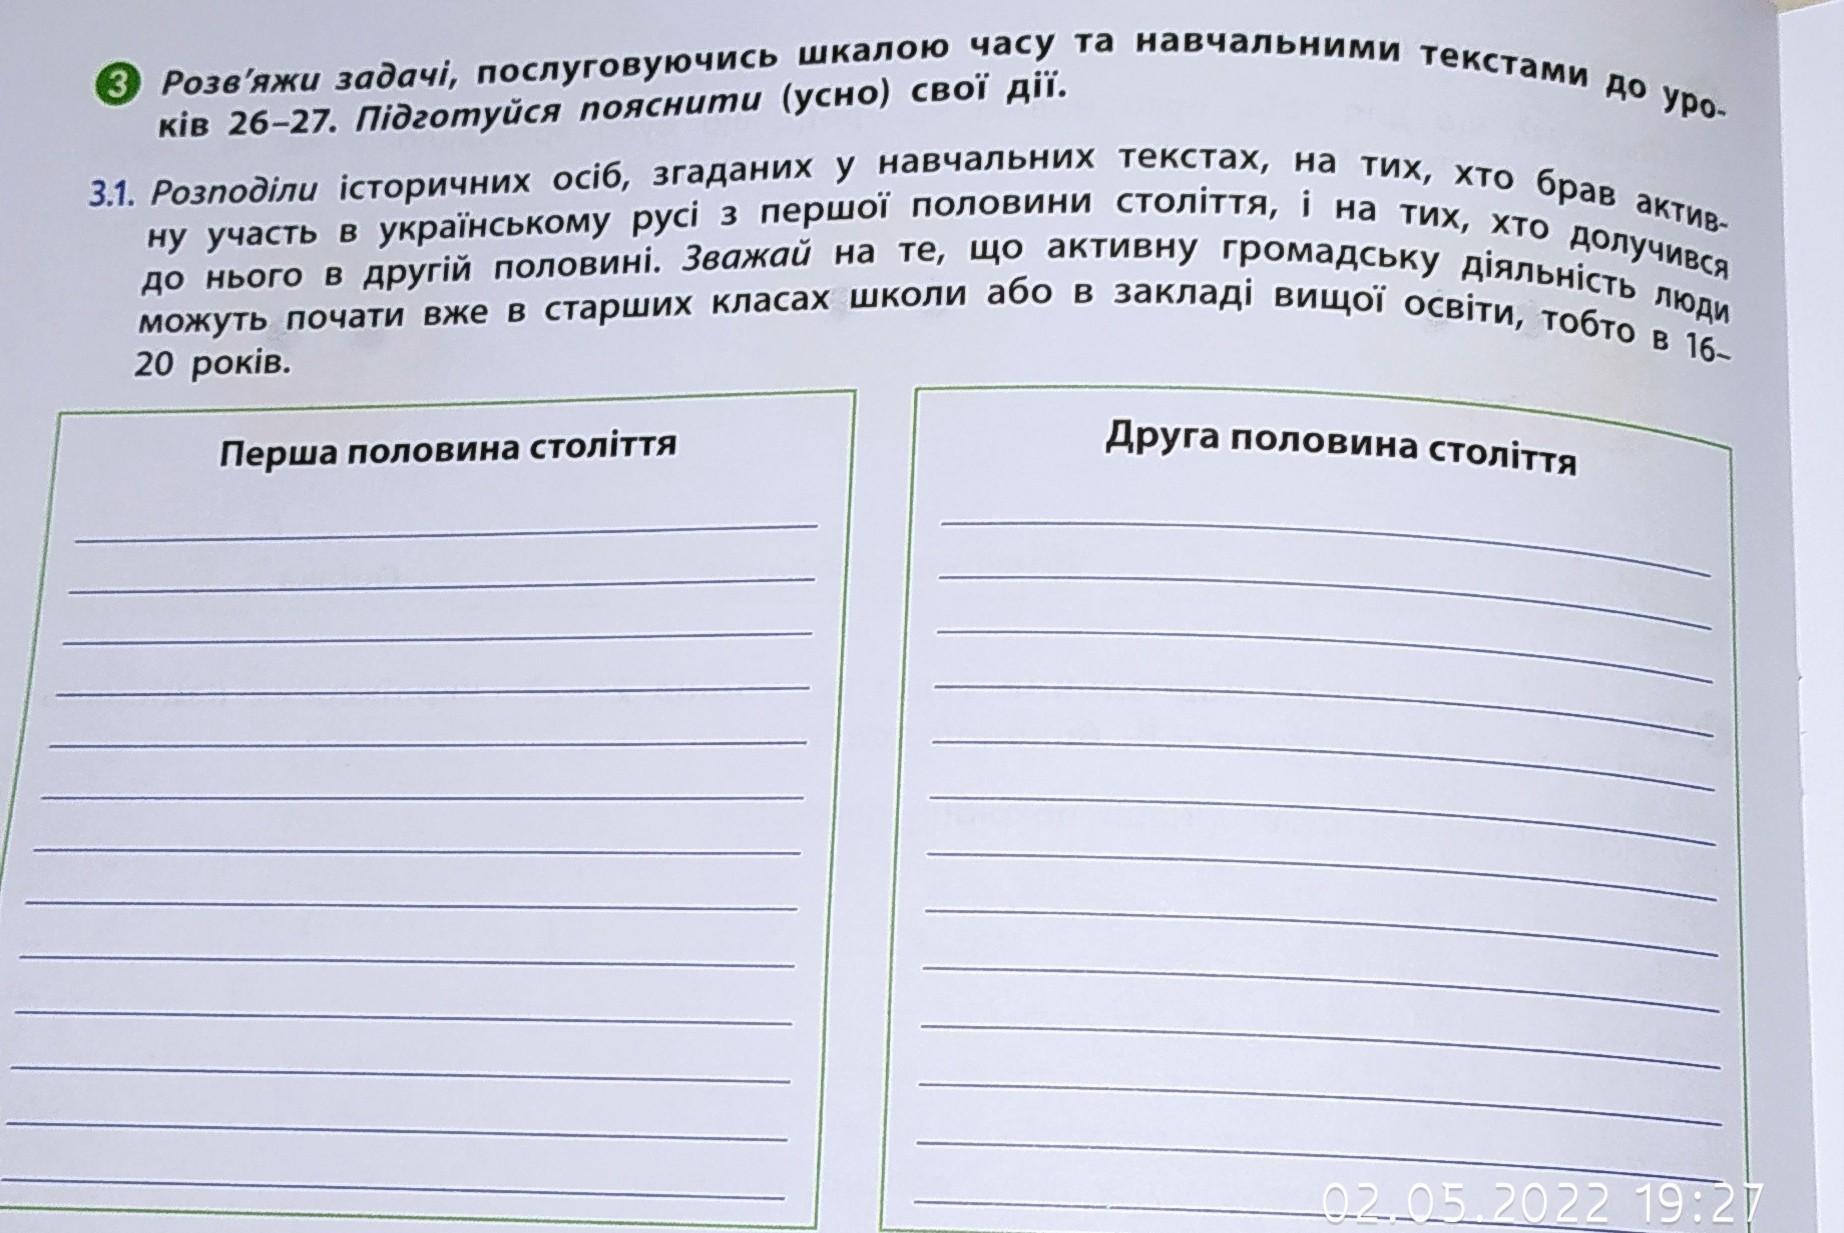 3 Розв’яжи задачі, послуговуючись шкалою часу та навчальними текстами до уро-
ків 26–27. Підготуйся пояснити (усно) свої дії.
3.1. Розподіли історичних осіб, згаданих у навчальних текстах, на тих, хто брав актив-
ну участь в українському русі з першої половини століття, і на тих, хто долучився
до нього в другій половині. Зважай на те, що активну громадську діяльність люди
можуть почати вже в старших класах школи або в закладі вищої освіти, тобто в 16–
20 років.
Перша половина століття
Друга половина століття
02.05.2022 19:27